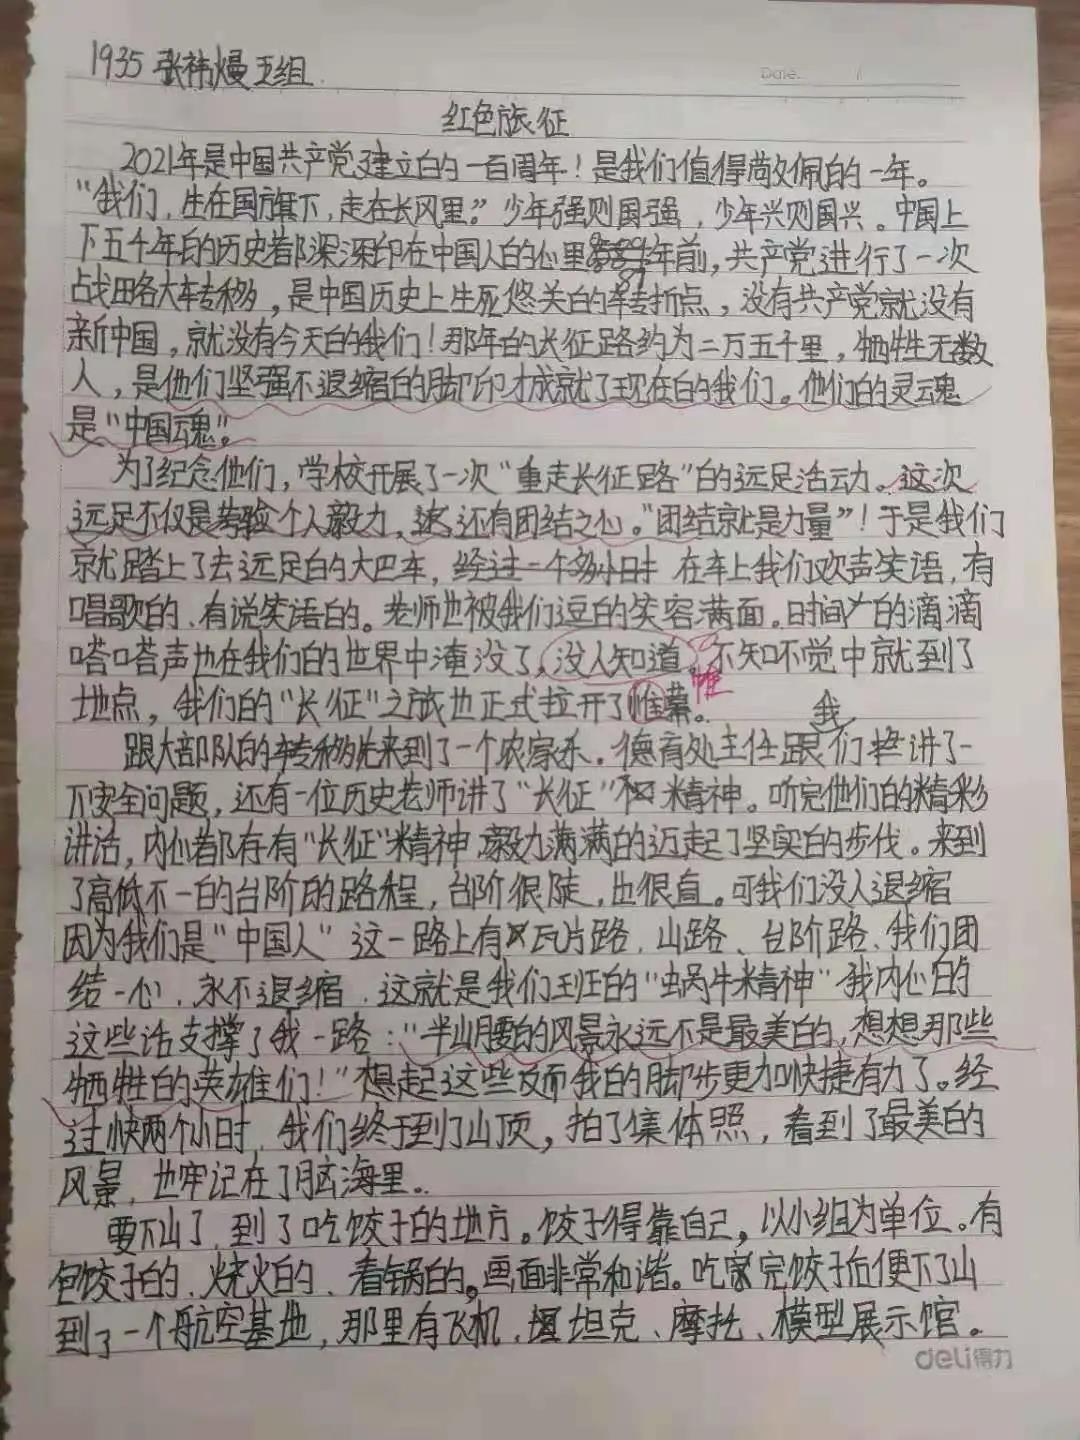 1935 张祎熳 五组
Date.
红色旅征
2021年是中国共产党建立的一百周年！是我们值得敬佩的一年。
“我们，生在国旗下，走在长风里。”少年强则国强，少年兴则国兴。中国上
下五千年的历史都深深印在中国人的心里 年前，共产党进行了一次
战略大转移，是中国历史上生死悠关的转折点，没有共产党就没有
新中国，就没有今天的我们！那年的长征路约为二万五千里，牺牲无数
人，是他们坚强不退缩的脚印才成就了现在的我们。他们的灵魂
是“中国魂”。
为了纪念他们，学校开展了一次“重走长征路”的远足活动。这次
远足不仅是考验个人毅力，还有团结之心。“团结就是力量”！于是我们
就踏上了去远足的大巴车，经过一个多小时 在车上我们欢声笑语，有
唱歌的、有说笑语的。老师也被我们逗的笑容满面。时间的滴滴
嗒嗒声也在我们的世界中淹没了，没人知道，不知不觉中就到了
地点，我们的“长征”之旅也正式拉开了帷幕。
帷
我
跟大部队的转移先来到了一个农家乐。德育处主任跟们讲了一
下安全问题，还有一位历史老师讲了“长征”精神。听完他们的精彩
讲话，内心都存有“长征”精神，毅力满满的迈起了坚实的步伐。来到
了高低不一的台阶的路程，台阶很陡，也很直。可我们没人退缩
因为我们是“中国人”这一路上有瓦片路、山路、台阶路、我们团
结一心，永不退缩，这就是我们班的“蜗牛精神”我内心的
这些话支撑了我一路：“半山腰的风景永远不是最美的，想想那些
牺牲的英雄们！”想起这些反而我的脚步更加快捷有力了。经
过快两个小时，我们终于到了山顶，拍了集体照，看到了最美的
风景，也牢记在了脑海里。
要下山了，到了吃饺子的地方。饺子得靠自己，以小组为单位。有
包饺子的、烧火的、看锅的。画面非常和谐。吃完饺子后便下了山
到了一个航空基地，那里有飞机、坦克、摩托、模型展示馆。
deli得力